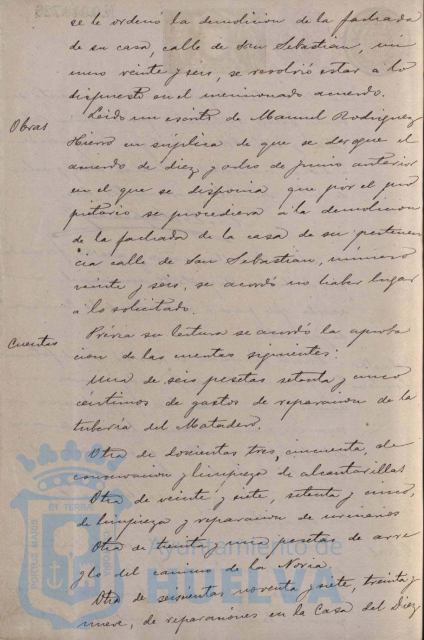 se le ordenó la demolicion de la fachada
de su casa, calle de San Sebastian, nú
mero veinte y seis, se resolvió estar á lo
dispuesto en el mencionado acuerdo.
Obras
Leido un escrito de Manuel Rodriguez
Hierro en súplica de que se derogue el
acuerdo de diez y ocho de Junio anterior
en el que se disponia que por el pro
pietario se procediera á la demolicion
de la fachada de la casa de su pertenen
cia calle de San Sebastian, número
veinte y seis, se acordó no haber lugar
á lo solicitado.
Cuentas
Prévia su lectura se acordó la aproba
cion de las cuentas siguientes:
Una de seis pesetas setenta y cinco
céntimos de gastos de reparacion de la
tuberia del Matadero.
Otra de doscientas tres, cincuenta, de
conservacion y limpieza de alcantarillas
Otra de veinte y siete, setenta y cinco,
de limpieza y reparacion de urinarios
Otra de treinta y una pesetas de arre
glo del camino de la Noria.
Otra de seiscientas noventa y siete, treinta y
nueve, de reparaciones en la Casa del Diez
PORTUS MARIS
ET TERRÆ
Ayuntamiento de
HUELVA